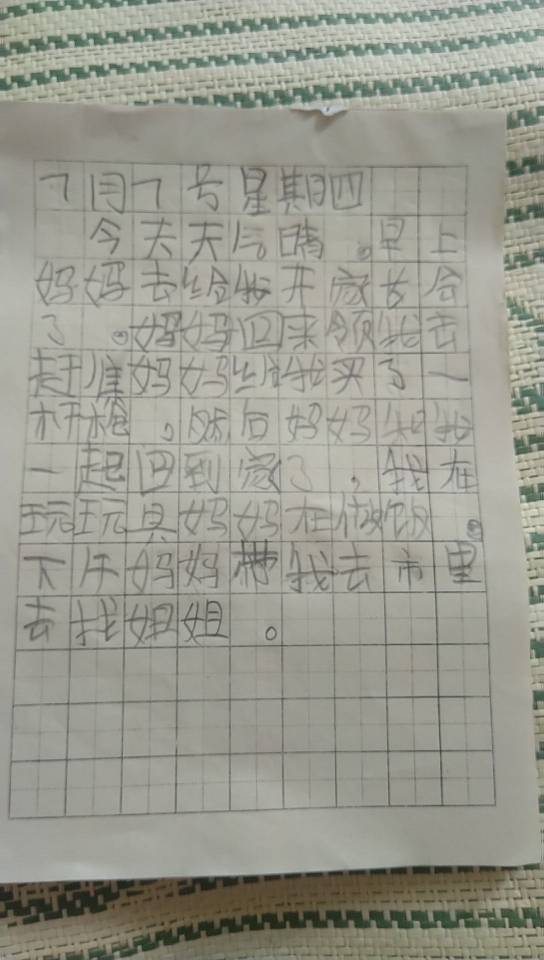 7月7号星期四
今天天气晴。早上
妈妈去给我开家长会
了。妈妈回来领我去
赶集妈妈给我买了一
杆枪,然后妈妈和我
一起回到家了,我在
玩玩具妈妈在做饭。
下午妈妈带我去市里
去找姐姐。